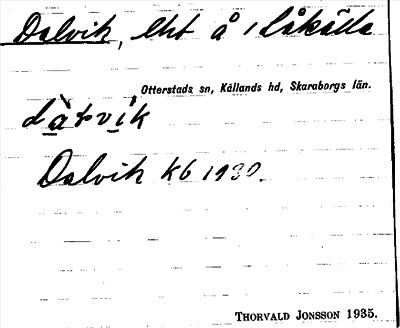 Dalvik, lht å Låkälla
Otterstads sn, Kållands hd, Skaraborgs län.
Dalvik K6 1930.
THORVALD JONSSON 1935.